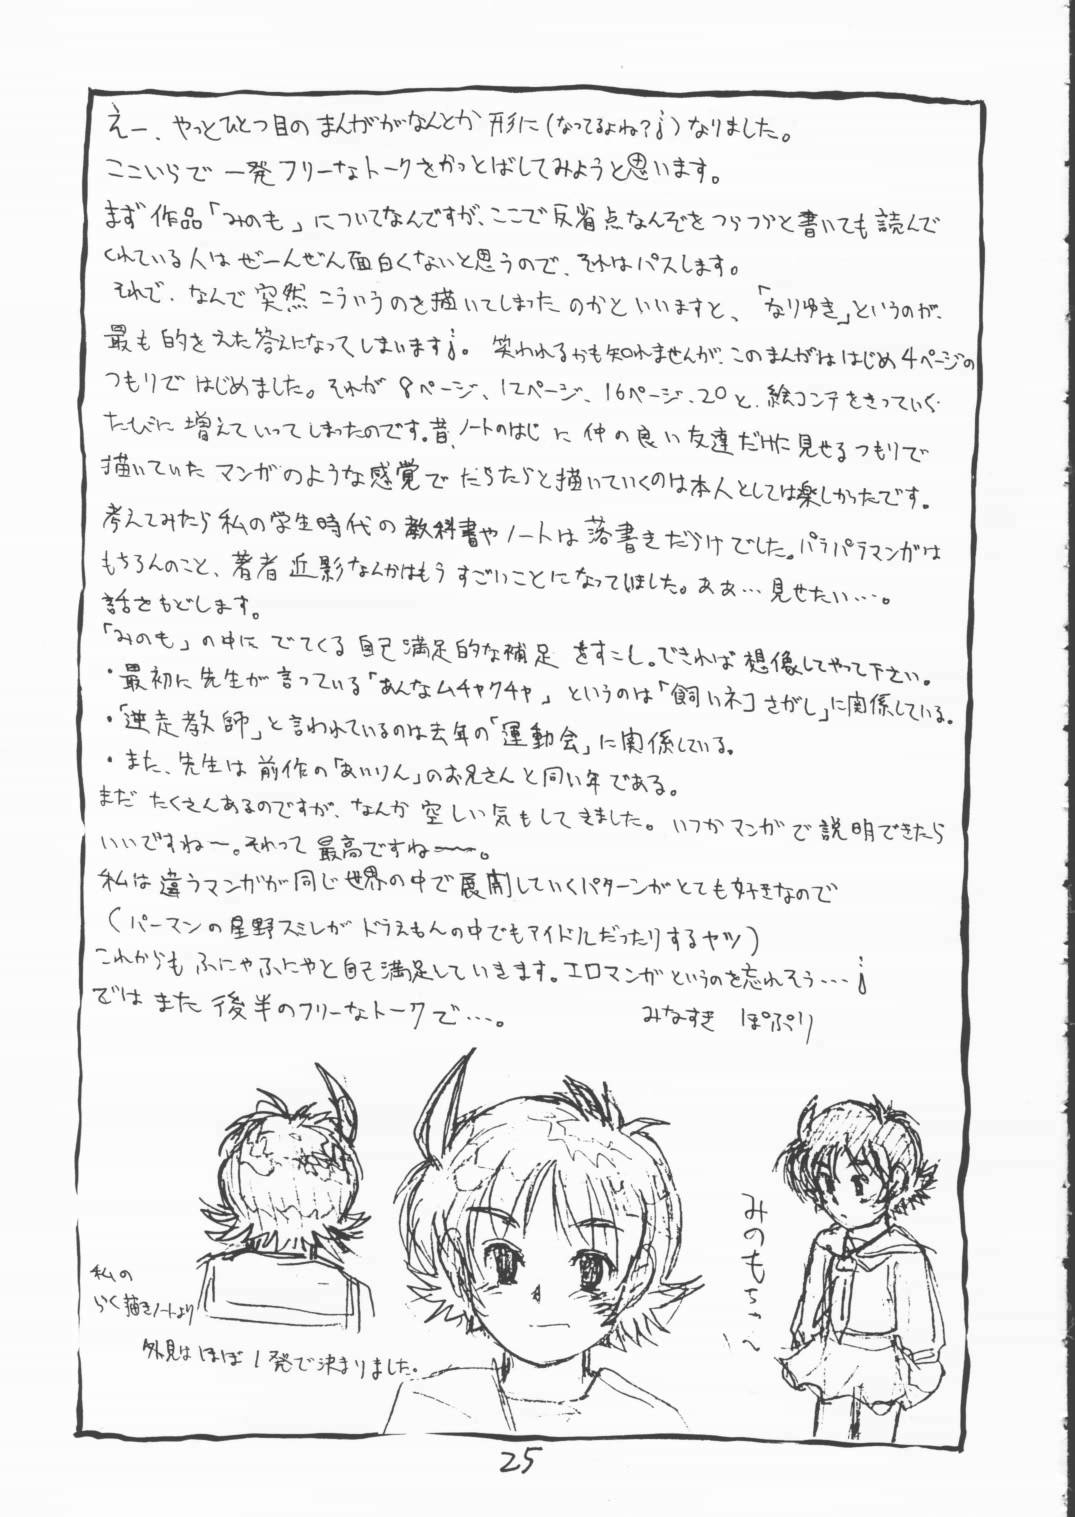 えー、やっとひとつ目のまんががなんとか形に(なってるよね?¡)なりました。
ここいらで一発フリーなトークをかっとばしてみようと思います。
まず作品「みのも」についてなんですが、ここで反省点なんぞをつらつらと書いても読んで
くれている人はぜーんぜん面白くないと思うので、それはパスします。
それで、なんで突然こういうのを描いてしまったのかといいますと、「なりゆき」というのが、
最も的をえた答えになってしまいます¡。笑われるかも知れませんが、このまんがははじめ4ページの
つもりではじめました。それが8ページ、12ページ、16ページ、20と、絵コンテをきっていく
たびに増えていってしまったのです。昔、ノートのはじに仲の良い友達だけに見せるつもりで
描いていたマンガのような感覚でだらだらと描いていくのは本人としては楽しかったです。
考えてみたら私の学生時代の教科書やノートは落書きだらけでした。パラパラマンガは
もちろんのこと、著者近影なんかはもうすごいことになっていました。ああ…見せたい…。
話をもどします。
「みのも」の中にでてくる自己満足的な補足をすこし。できれば想像してやって下さい。
・最初に先生が言っている「あんなムチャクチャ」というのは「飼いネコさがし」に関係している。
・「逆走教師」と言われているのは去年の「運動会」に関係している。
・また、先生は前作の「あいりん」のお兄さんと同い年である。
まだたくさんあるのですが、なんか空しい気もしてきました。いつかマンガで説明できたら
いいですね〜。それって最高ですね〜〜。
私は違うマンガが同じ世界の中で展開していくパターンがとても好きなので
(パーマンの星野スミレがドラえもんの中でもアイドルだったりするヤツ)
これからもふにゃふにゃと自己満足していきます。エロマンガというのを忘れそう…¡
ではまた後半のフリーなトークで…。
みなずき ぽぷり
みのもちゃ〜ん
私の
らく描きノートより
外見はほぼ1発で決まりました。
25